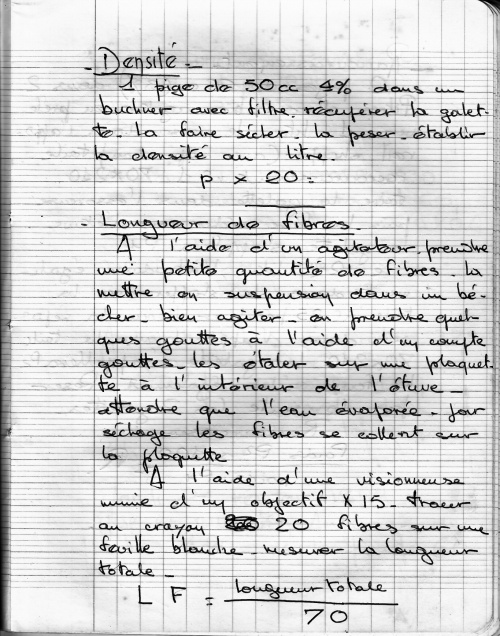 - Densité -
1 pige de 50cc 4% dans un
buchner avec filtre. récupérer la galet-
te. la faire sécher. la peser. établir
la densité au litre.
p x 20 =
- Longueur de fibres.
A l'aide d'un agitateur. prendre
une petite quantité de fibres. la
mettre en suspension dans un bé-
cher. bien agiter. en prendre quel-
ques gouttes à l'aide d'un compte
gouttes. les étaler sur une plaquet-
te à l'intérieur de l'étuve -
attendre que l'eau évaporée. par
séchage les fibres se collent sur
la plaquette
A l'aide d'une visionneuse
munie d'un objectif X 15. tracer
au crayon 20 fibres sur une
feuille blanche. mesurer la longueur
totale -
L F = longueur totale
70